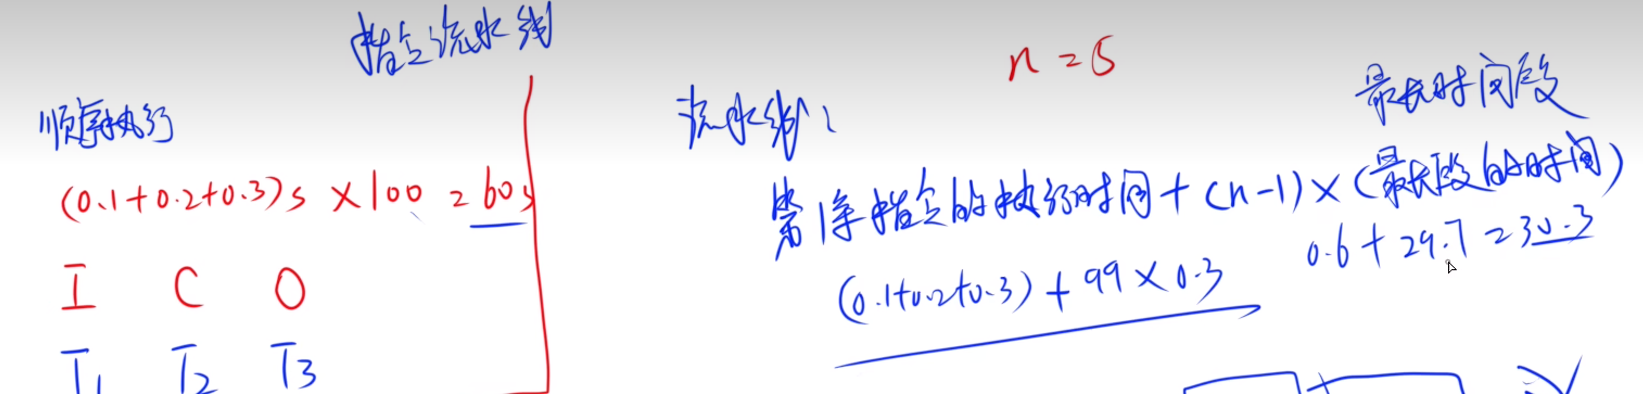 指令流水线
顺序执行
(0.1+0.2+0.3)s × 100 = 60s
I C O
T1 T2 T3
n = 5
流水线:
最长时间段
第1条指令的执行时间 + (n-1) × (最长段的时间)
(0.1+0.2+0.3) + 99 × 0.3
0.6 + 29.7 = 30.3